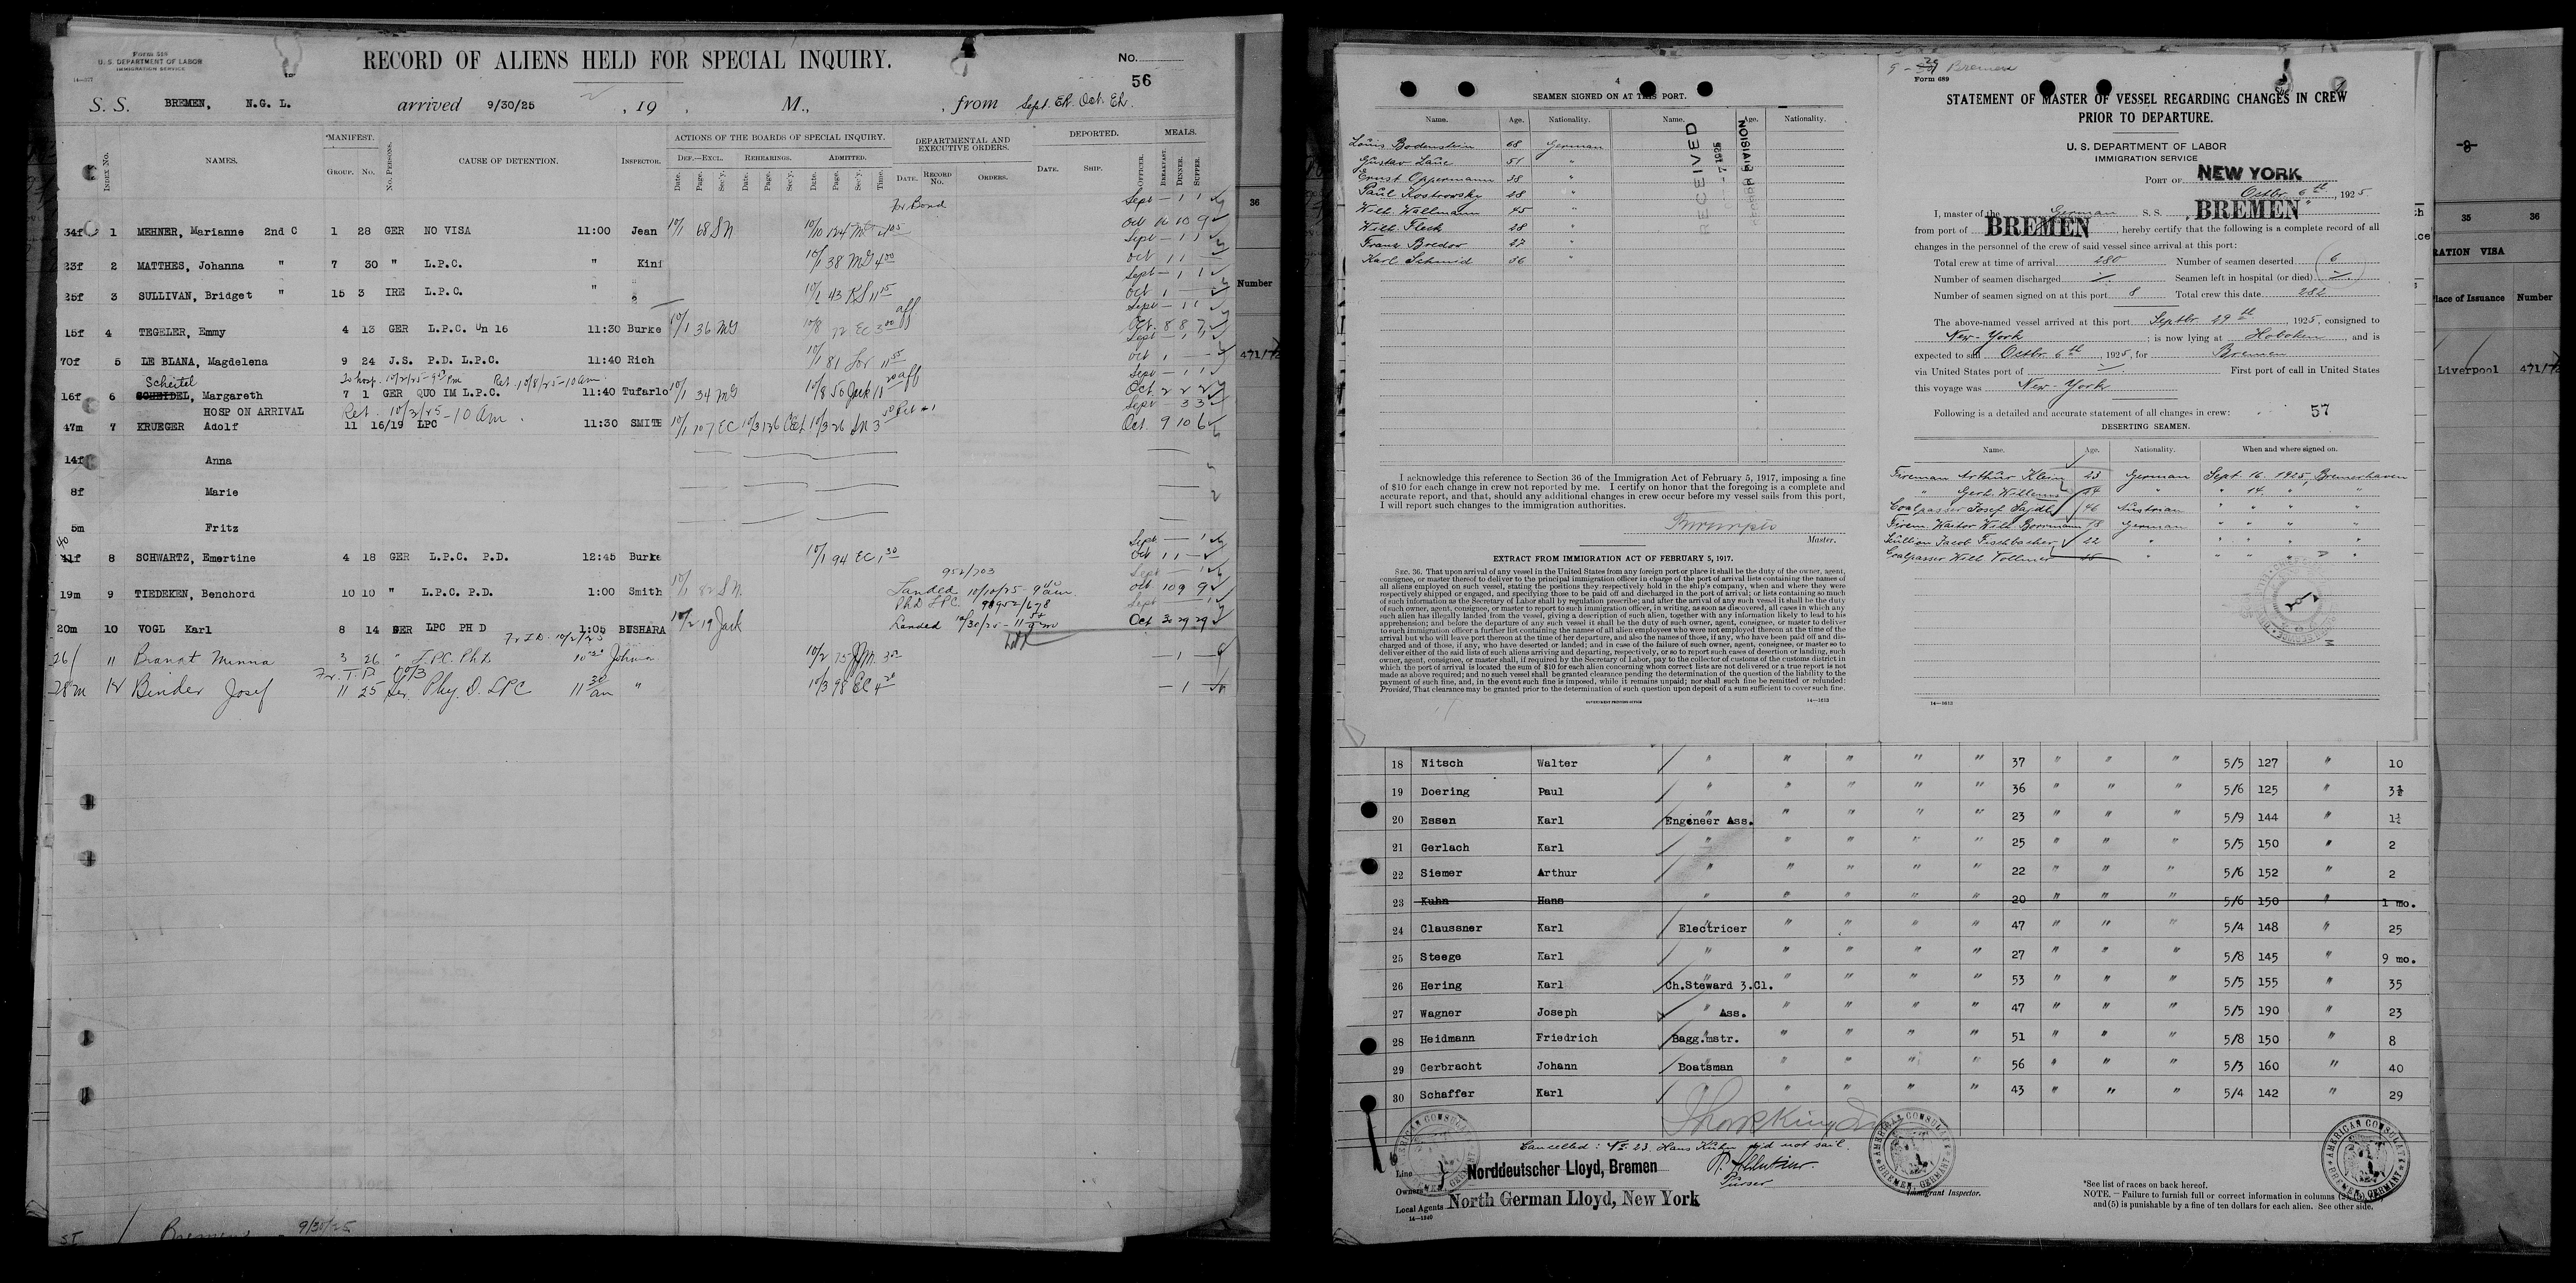 Form 516
U. S. DEPARTMENT OF LABOR
IMMIGRATION SERVICE
RECORD OF ALIENS HELD FOR SPECIAL INQUIRY.
No.
56
S. S. BREMEN, N.G. L. arrived 9/30/25 , 19 , M., , from Sept. Ex. Oct. Ex.
INDEX NO. NAMES. MANIFEST. GROUP. NO. NO. PERSONS. CAUSE OF DETENTION. INSPECTOR. ACTIONS OF THE BOARDS OF SPECIAL INQUIRY. DEF.—EXCL. Date. Page. Sec'y. REHEARINGS. Date. Page. Sec'y. ADMITTED. Date. Page. Sec'y. Time. DEPARTMENTAL AND EXECUTIVE ORDERS. DATE. RECORD NO. ORDERS. DEPORTED. DATE. SHIP. OFFICER. MEALS. BREAKFAST. DINNER. SUPPER.
For Bond Sept — 1 1
34f 1 MEHNER, Marianne 2nd C 1 28 GER NO VISA 11:00 Jean 10/1 68 SN 10/10 124 Oct 10 10 9
Sept — 1 1
23f 2 MATTHES, Johanna " 7 30 " L.P.C. " King 10/1 38 MG 4 00 Oct 1 1 —
Sept — 1 1
25f 3 SULLIVAN, Bridget " 15 3 IRE L.P.C. " " 10/1 43 KS 11 15 Oct 1 — —
Sept — 1 1
15f 4 TEGELER, Emmy 4 13 GER L.P.C. Un 16 11:30 Burke 10/1 36 MG 10/8 72 EC 3 00 aff Oct. 8 8 7
Sept — 1 1
70f 5 LE BLANA, Magdelena 9 24 J.S. P.D. L.P.C. 11:40 Rich 10/1 81 11 55 Oct 1 — —
Scheitel To hosp. 10/2/25 - Ret. 10/8/25 - 10 am. Sept — 1 1
16f 6 SCHEIDEL, Margareth 7 1 GER QUO IM L.P.C. 11:40 Tufarlo 10/1 34 MG 10/8 50 Jack aff Oct. 2 2 2
HOSP ON ARRIVAL Ret. 10/2/25 - 10 am. Sept — 3 3
47m 7 KRUEGER Adolf 11 16/19 LPC 11:30 SMITH 10/1 107 EC 10/3 126 10/3 26 SN 3 Oct. 9 10 6
14f Anna
8f Marie
5m Fritz
Sept — 1
40
41f 8 SCHWARTZ, Emertine 4 18 GER L.P.C. P.D. 12:45 Burke 10/1 94 EC 1 30 Oct 1 1 —
952/703 Sept — 1
19m 9 TIEDEKEN, Benchord 10 10 " L.P.C. P.D. 1:00 Smith 10/1 82 SN. Landed 10/10/25 - 9 am. Oct 10 9 9
PhD LPC. 952/678 Sept — 1
20m 10 VOGL Karl 8 14 GER LPC PH D 1:05 BUSHARA 10/2 19 Jack Landed 10/30/25 - 11 Oct 30 29 29
Fr. I.D. 10/2/25
26f 11 Brandt Minna 3 26 " LPC. PhD 10 30 10/2 75 — 1 —
Fr. I.D 10/3
28m 12 Binder Josef 11 25 Ger. Phy. D. LPC 11 30 am " 10/3 98 EC 4 20 — 1 —
ST Bremen - 9/30/25
36
Number
471/72
4
SEAMEN SIGNED ON AT THIS PORT.
Name. Age. Nationality. Name. Age. Nationality.
Louis Bodenstein 68 German
Gustav Laue 51 "
Ernst Oppermann 38 "
Paul Kostrowsky 28 "
Wilh. Wallmann 45 "
Wilh. Fleck 28 "
Franz Bredow 27 "
Karl Schmid 36 "
RECEIVED
7 1925
DIVISION
I acknowledge this reference to Section 36 of the Immigration Act of February 5, 1917, imposing a fine
of $10 for each change in crew not reported by me. I certify on honor that the foregoing is a complete and
accurate report, and that, should any additional changes in crew occur before my vessel sails from this port,
I will report such changes to the immigration authorities.
Master.
EXTRACT FROM IMMIGRATION ACT OF FEBRUARY 5, 1917.
SEC. 36. That upon arrival of any vessel in the United States from any foreign port or place it shall be the duty of the owner, agent,
consignee, or master thereof to deliver to the principal immigration officer in charge of the port of arrival lists containing the names of
all aliens employed on such vessel, stating the positions they respectively hold in the ship's company, when and where they were
respectively shipped or engaged, and specifying those to be paid off and discharged in the port of arrival; or lists containing so much
of such information as the Secretary of Labor shall by regulation prescribe; and after the arrival of any such vessel it shall be the duty
of such owner, agent, consignee, or master to report to such immigration officer, in writing, as soon as discovered, all cases in which any
such alien has illegally landed from the vessel, giving a description of such alien, together with any information likely to lead to his
apprehension; and before the departure of any such vessel it shall be the duty of such owner, agent, consignee, or master to deliver
to such immigration officer a further list containing the names of all alien employees who were not employed thereon at the time of the
arrival but who will leave port thereon at the time of her departure, and also the names of those, if any, who have been paid off and dis-
charged, and of those, if any, who have deserted or landed; and in case of the failure of such owner, agent, consignee, or master so to
deliver either of the said lists of such aliens arriving and departing, respectively, or so to report such cases of desertion or landing, such
owner, agent, consignee, or master shall, if required by the Secretary of Labor, pay to the collector of customs of the customs district in
which the port of arrival is located the sum of $10 for each alien concerning whom correct lists are not delivered or a true report is not
made as above required; and no such vessel shall be granted clearance pending the determination of the question of the liability to the
payment of such fine, and, in the event such fine is imposed, while it remains unpaid; nor shall such fine be remitted or refunded:
Provided, That clearance may be granted prior to the determination of such question upon deposit of a sum sufficient to cover such fine.
GOVERNMENT PRINTING OFFICE 14—1613
Bremen
Form 689
STATEMENT OF MASTER OF VESSEL REGARDING CHANGES IN CREW
PRIOR TO DEPARTURE.
U. S. DEPARTMENT OF LABOR
IMMIGRATION SERVICE
PORT OF NEW YORK
Octbr. 6th, 1925.
I, master of the German S. S. „BREMEN"
from port of BREMEN, hereby certify that the following is a complete record of all
changes in the personnel of the crew of said vessel since arrival at this port:
Total crew at time of arrival 280 Number of seamen deserted 6
Number of seamen discharged ./. Seamen left in hospital (or died) ./.
Number of seamen signed on at this port 8 Total crew this date 282
The above-named vessel arrived at this port Septbr. 29th 1925, consigned to
New-York; is now lying at Hoboken and is
expected to sail Octbr. 6th, 1925, for Bremen
via United States port of ./. First port of call in United States
this voyage was New-York
Following is a detailed and accurate statement of all changes in crew:
57
DESERTING SEAMEN.
Name. Age. Nationality. When and where signed on.
Fireman Arthur Klein 23 German Sept. 16. 1925, Bremerhaven
" Gerh. Willems 24 " " 14. " "
Coalpasser Josef 46 Austrian " " " "
Firem. Waiter Wilh. Borrmann 18 German " " " "
Scullion Jacob Fischbacher 22 " " " " "
Coalpasser Wilh. Vollmer " " " " "
14—1613
18 Nitsch Walter " " " " " 37 " " " 5/5 127 " 10
19 Doering Paul " " " " " 36 " " " 5/6 125 " 3½
20 Essen Karl Engineer Ass. " " " " 23 " " " 5/9 144 " 1½
21 Gerlach Karl " " " " " 25 " " " 5/5 150 " 2
22 Siemer Arthur " " " " " 22 " " " 5/6 152 " 2
23 Kuhn Hans " " " " " 20 " " " 5/6 150 " 1 mo.
24 Claussner Karl Electricer " " " " 47 " " " 5/4 148 " 25
25 Steege Karl " " " " " 27 " " " 5/8 145 " 9 mo.
26 Hering Karl Ch.Steward 3.Cl. " " " " 53 " " " 5/5 155 " 35
27 Wagner Joseph " Ass. " " " " 47 " " " 5/5 190 " 23
28 Heidmann Friedrich Bagg.mstr. " " " " 51 " " " 5/8 150 " 8
29 Gerbracht Johann Boatsman " " " " 56 " " " 5/3 160 " 40
30 Schaffer Karl " " " " 43 " " " 5/4 142 " 29
Cancelled: No 23. Hans Kuhn did not sail.
Purser
Line Norddeutscher Lloyd, Bremen
Owners
Local Agents North German Lloyd, New York
14—1240
Immigrant Inspector.
AMERICAN CONSULATE BREMEN, GERMANY
AMERICAN CONSULATE BREMEN, GERMANY
AMERICAN CONSULATE BREMEN, GERMANY
*See list of races on back hereof.
NOTE.—Failure to furnish full or correct information in columns
and (5) is punishable by a fine of ten dollars for each alien. See other side.
8
35 36
RATION VISA
lace of Issuance Number
Liverpool 471/72